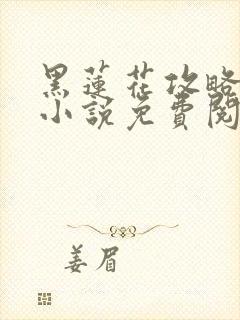 黑蓮花攻略
小說免費閱
姜眉